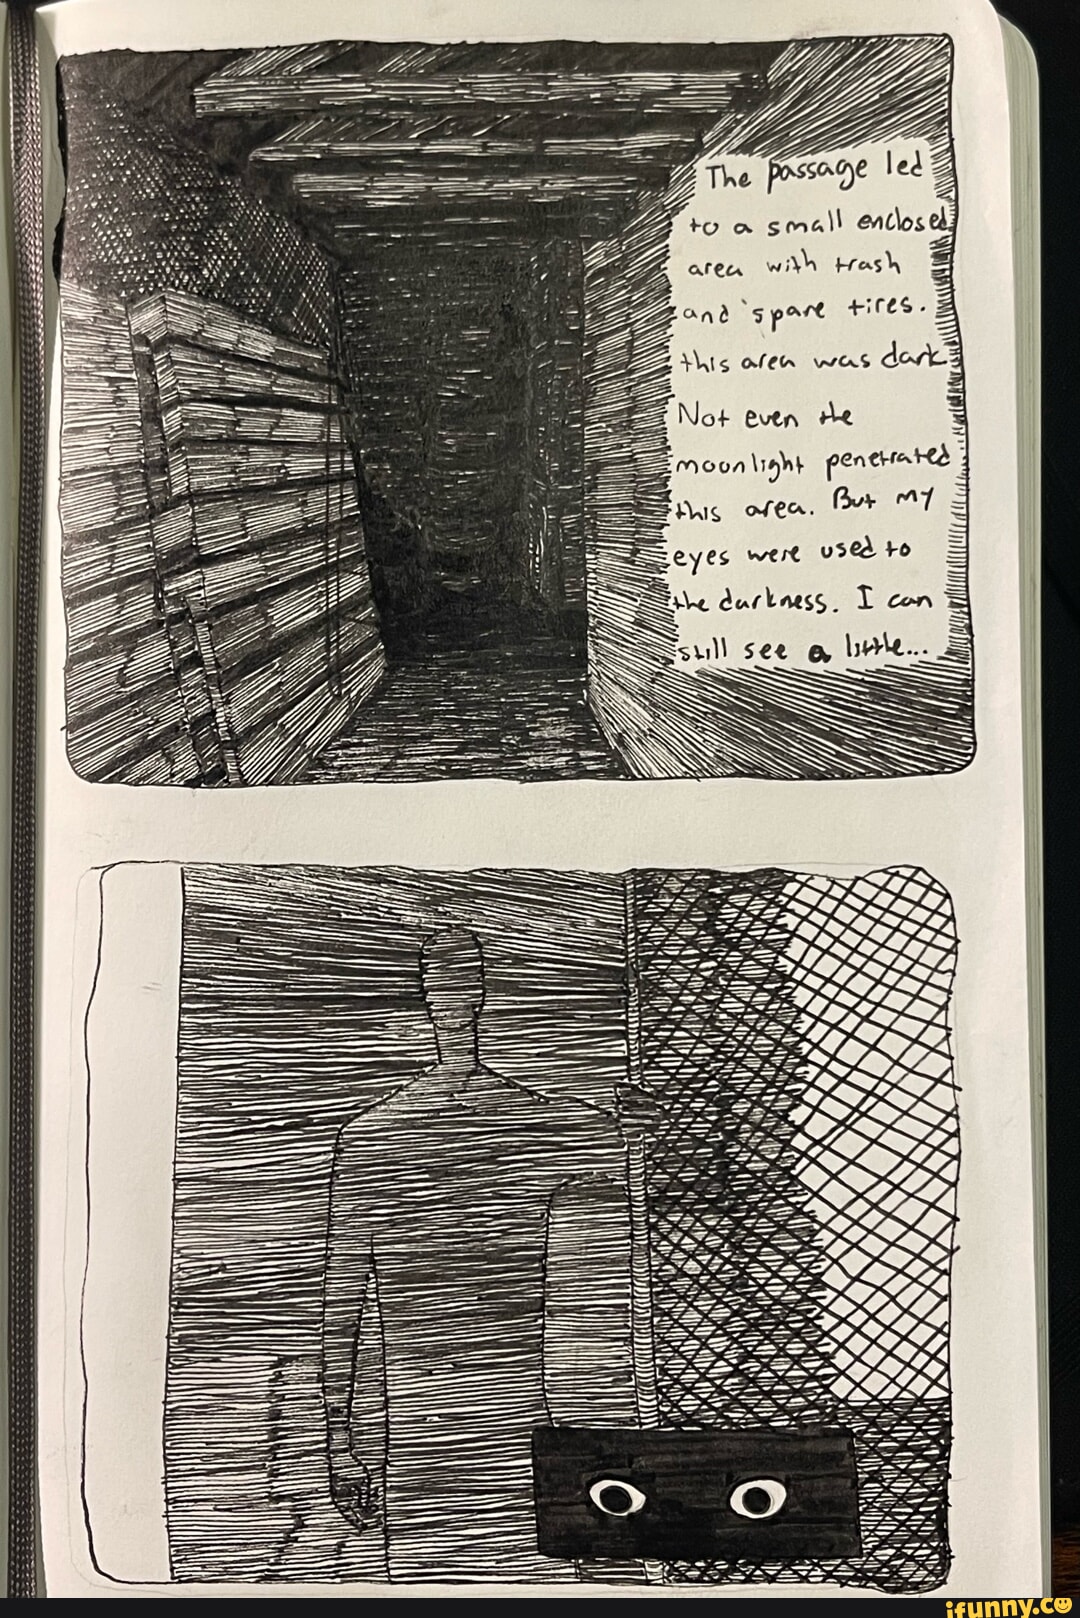 The passage led
to a small enclosed
area with trash
and spare tires.
this area was dark
Not even the
moonlight penetrated
this area. But my
eyes were used to
the darkness. I can
still see a little...
ifunny.co